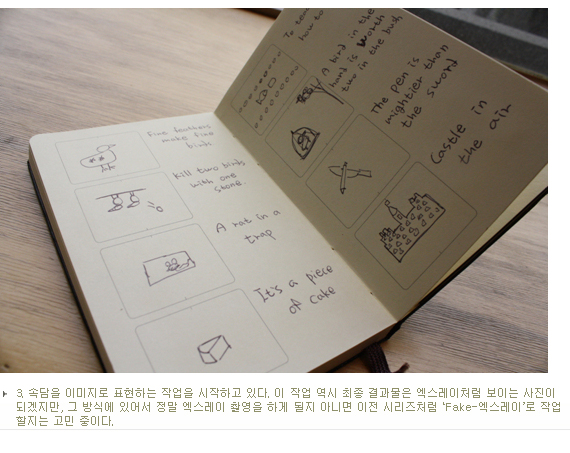 Fine feathers
make fine
birds
Kill two birds
with one
stone.
A rat in a
trap
It's a piece
of cake
how to
A bird in the
hand is worth
two in the bush,
The pen is
mightier than
the sword
Castle in
the air
3. 속담을 이미지로 표현하는 작업을 시작하고 있다. 이 작업 역시 최종 결과물은 엑스레이처럼 보이는 사진이
되겠지만, 그 방식에 있어서 정말 엑스레이 촬영을 하게 될지 아니면 이전 시리즈처럼 ‘Fake-엑스레이’로 작업
할지는 고민 중이다.